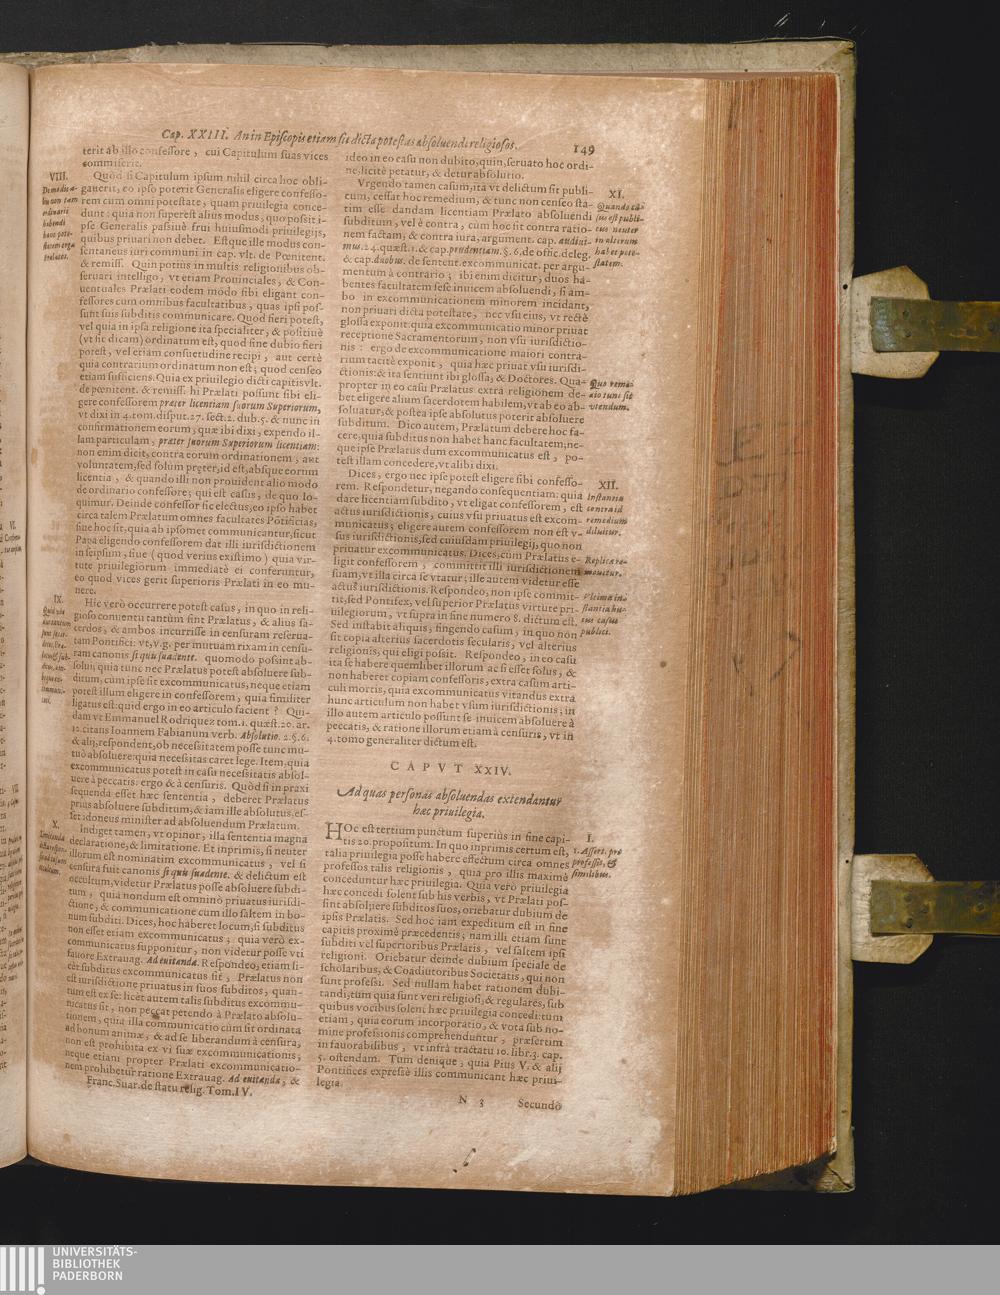 Cap. XXIII. An in Episcopis etiam sit dicta potestas absoluendi religiosos. 149
terit ab illo confessore, cui Capitulum suas vices
commiserit.
VIII.
Quòd si Capitulum ipsum nihil circa hoc obli-
gauerit, eo ipso poterit Generalis eligere confesso-
rem cum omni potestate, quam priuilegia conce-
dunt: quia non superest alius modus, quo possit i-
pse Generalis passiuè frui huiusmodi priuilegijs,
quibus priuari non debet. Estque ille modus con-
sentaneus iuri communi in cap. vlt. de Pœnitent.
& remiss. Quin potiùs in multis religionibus ob-
seruari intelligo, vt etiam Prouinciales, & Con-
uentuales Prælati eodem modo sibi eligant con-
fessores cum omnibus facultatibus, quas ipsi pos-
sunt suis subditis communicare. Quod fieri potest,
vel quia in ipsa religione ita specialiter, & positiuè
(vt sic dicam) ordinatum est, quod sine dubio fieri
potest, vel etiam consuetudine recipi, aut certè
quia contrarium ordinatum non est; quod censeo
etiam sufficiens. Quia ex priuilegio dicti capitis vlt.
de pœnitent. & remiss. hi Prælati possunt sibi eli-
gere confessorem præter licentiam suorum Superiorum,
vt dixi in 4. tom. disput. 27. sect. 2. dub. 5. & nunc in
confirmationem eorum, quæ ibi dixi, expendo il-
lam particulam, præter suorum Superiorum licentiam:
non enim dicit, contra eorum ordinationem, aut
voluntatem, sed solùm præter, id est, absque eorum
licentia, & quando illi non prouident alio modo
de ordinario confessore; qui est casus, de quo lo-
quimur. Deinde confessor sic electus, eo ipso habet
circa talem Prælatum omnes facultates Pōtificias,
siue hoc sit, quia ab ipsomet communicantur, sicut
Papa eligendo confessorem dat illi iurisdictionem
in seipsum, siue (quod verius existimo) quia vir-
tute priuilegiorum immediatè ei conferuntur,
eo quod vices gerit superioris Prælati in eo mu-
nere.
IX.
Hîc verò occurrere potest casus, in quo in reli-
gioso conuentu tantùm sint Prælatus, & alius sa-
cerdos, & ambos incurrisse in censuram reserua-
tam Pontifici: vt, v.g. per mutuam rixam in censu-
ram canonis si quis suadente. quomodo possint ab-
solui, quia tunc nec Prælatus potest absoluere sub-
ditum, cum ipse sit excommunicatus, neque etiam
potest illum eligere in confessorem, quia similiter
ligatus est: quid ergo in eo articulo facient? Qui-
dam vt Emmanuel Rodriquez tom. 1. quæst. 20. ar.
12. citans Ioannem Fabianum verb. Absolutio. 2. §. 6.
& alij, respondent, ob necessitatem posse tunc mu-
tuò absoluere: quia necessitas caret lege. Item, quia
excommunicatus potest in casu necessitatis absol-
uere à peccatis: ergo & à censuris. Quòd si in praxi
sequenda esset hæc sententia, deberet Prælatus
prius absoluere subditum, & iam ille absolutus, es-
set idoneus minister ad absoluendum Prælatum.
X.
Indiget tamen, vt opinor, illa sententia magna
declaratione, & limitatione. Et inprimis, si neuter
illorum est nominatim excommunicatus, vel si
censura fuit canonis si quis suadente. & delictum est
occultum, videtur Prælatus posse absoluere subdi-
tum, quia nondum est omninò priuatus iurisdi-
ctione, & communicatione cum illo saltem in bo-
num subditi. Dices, hoc haberet locum, si subditus
non esset etiam excommunicatus; quia verò ex-
communicatus supponitur, non videtur posse vti
fauore Extrauag. Ad euitanda. Respondeo, etiam li-
cèt subditus excommunicatus sit, Prælatus non
est iurisdictione priuatus in suos subditos, quan-
tum est ex se: licèt autem talis subditus excommu-
nicatus sit, non peccat petendo à Prælato absolu-
tionem, quia illa communicatio cùm sit ordinata
ad bonum animæ, & ad se liberandum à censura,
non est prohibita ex vi suæ excommunicationis;
neque etiam propter Prælati excommunicatio-
nem prohibetur ratione Extrauag. Ad euitanda, &
Franc. Suar. de statu relig. Tom. IV.
ideo in eo casu non dubito, quin, seruato hoc ordi-
ne, licitè petatur, & detur absolutio.
XI.
Quando ca-
sus est publi-
cus neuter
in alterum
habet pote-
statem.
Vrgendo tamen casum, ita vt delictum sit publi-
cum, cessat hoc remedium, & tunc non censeo sta-
tim esse dandam licentiam Prælato absoluendi
subditum, vel è contra, cùm hoc sit contra ratio-
nem factam, & contra iura, argument. cap. audiui-
mus. 24. quæst. 1. & cap. prudentiam. §. 6. de offic. deleg.
& cap. duobus. de sentent. excommunicat. per argu-
mentum à contrario; ibi enim dicitur, duos ha-
bentes facultatem sese inuicem absoluendi, si am-
bo in excommunicationem minorem incidant,
non priuari dicta potestate, nec vsu eius, vt rectè
glossa exponit: quia excommunicatio minor priuat
receptione Sacramentorum, non vsu iurisdictio-
nis: ergo de excommunicatione maiori contra-
rium tacitè exponit, quia hæc priuat vsu iurisdi-
ctionis: & ita sentiunt ibi glossa, & Doctores. Qua-
propter in eo casu Prælatus extra religionem de-
bet eligere alium sacerdotem habilem, vt ab eo ab-
soluatur, & postea ipse absolutus poterit absoluere
subditum. Dico autem, Prælatum debere hoc fa-
cere, quia subditus non habet hanc facultatem, ne-
que ipse Prælatus dum excommunicatus est, po-
test illam concedere, vt alibi dixi.
Quo reme-
dio tunc sit
vtendum.
XII.
Instantia
contra id
remedium
diluitur.
Dices, ergo nec ipse potest eligere sibi confesso-
rem. Respondetur, negando consequentiam: quia
dare licentiam subdito, vt eligat confessorem, est
actus iurisdictionis, cuius vsu priuatus est excom-
municatus; eligere autem confessorem non est v-
sus iurisdictionis, sed cuiusdam priuilegij, quo non
priuatur excommunicatus. Dices, cùm Prælatus e-
ligit confessorem, committit illi iurisdictionem
suam, vt illa circa se vtatur; ille autem videtur esse
actus iurisdictionis. Respondeo, non ipse commit-
tit, sed Pontifex, vel superior Prælatus virtute pri-
uilegiorum, vt supra in fine numero 8. dictum est.
Sed instabit aliquis, fingendo casum, in quo non
sit copia alterius sacerdotis secularis, vel alterius
religionis, qui eligi possit. Respondeo, in eo casu
ita se habere quemlibet illorum ac si esset solus, &
non haberet copiam confessoris, extra casum arti-
culi mortis, quia excommunicatus vitandus extra
hunc articulum non habet vsum iurisdictionis; in
illo autem articulo possunt se inuicem absoluere à
peccatis, & ratione illorum etiam à censuris, vt in
4. tomo generaliter dictum est.
Replica re-
mouetur.
Vltima in-
stantia hu-
ius casus
publici.
CAPVT XXIV.
Ad quas personas absoluendas extendantur
hæc priuilegia.
I.
1. Assert. pro
professis, &
similibus.
HOc est tertium punctum superiùs in fine capi-
tis 20. propositum. In quo inprimis certum est,
talia priuilegia posse habere effectum circa omnes
professos talis religionis, quia pro illis maximè
conceduntur hæc priuilegia. Quia verò priuilegia
hæc concedi solent sub his verbis, vt Prælati pos-
sint absoluere subditos suos, oriebatur dubium de
ipsis Prælatis. Sed hoc iam expeditum est in fine
capitis proximè præcedentis; nam illi etiam sunt
subditi vel superioribus Prælatis, vel saltem ipsi
religioni. Oriebatur deinde dubium speciale de
scholaribus, & Coadiutoribus Societatis, qui non
sunt professi. Sed nullam habet rationem dubi-
tandi, tum quia sunt veri religiosi, & regulares, sub
quibus vocibus solent hæc priuilegia concedi: tum
etiam, quia eorum incorporatio, & vota sub no-
mine professionis comprehenduntur, præsertim
in fauorabilibus, vt infrà tractatu 10. libr. 3. cap.
5. ostendam. Tum denique, quia Pius V. & alij
Pontifices expressè illis communicant hæc priui-
legia.
N 3 Secundò
UNIVERSITÄTS-
BIBLIOTHEK
PADERBORN